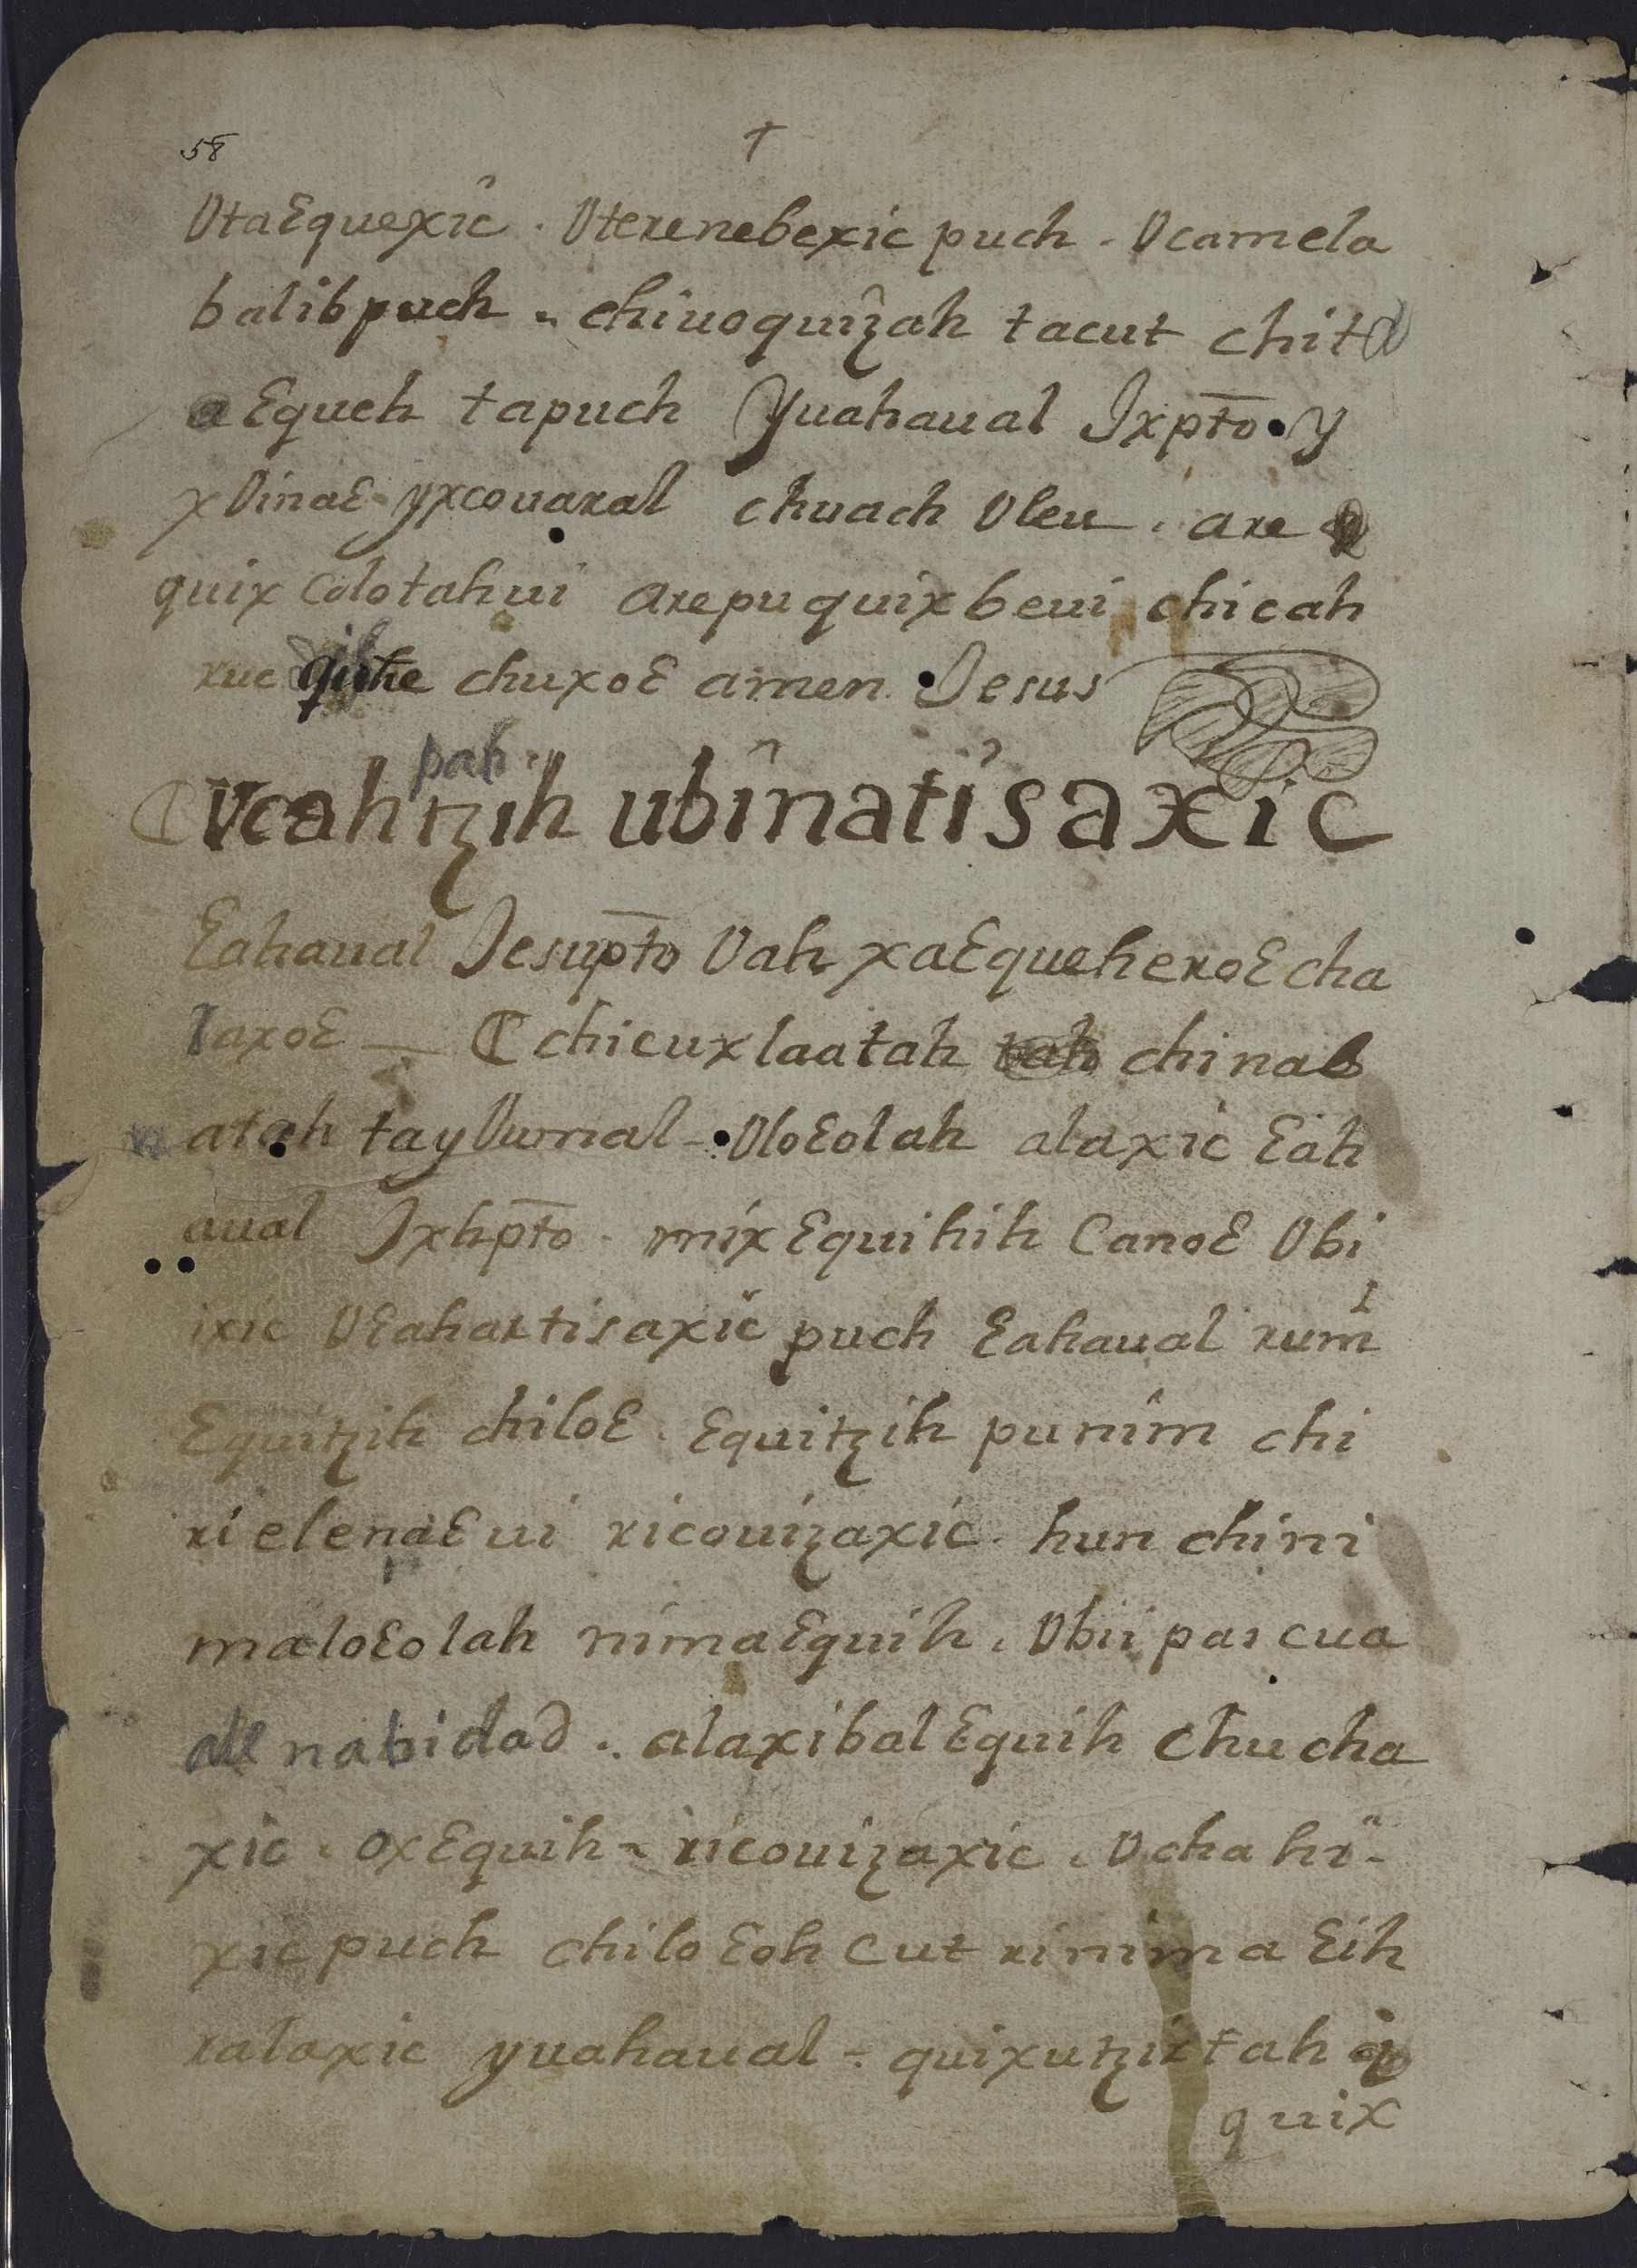 58
†
Vtaɛquexic . Vterenebexic puch . Vcamela
balib puch . chiuoquiꜩah tacut chita
aɛqueh tapuch Yuahaual Jxpt̄o . y
x Vinaɛ yxcouaral chuach Vleu . are
quix Colotahui arepu quixbeui chicah
ruc quehe chuxoɛ amen Jesus
pah
Vcah tzih ubinatisaxic
ɛahaual Jesupt̄o Vah xaɛqueheroɛ cha
Taxoɛ — ₵ chicuxlaatah tah chinab
atah tay Vumal - Vloɛolah alaxic ɛah
aual Jxhpt̄o . mixɛquihih Canoɛ Vbi
ixic Vɛahartisaxic puch ɛahaual rum
ɛquitzih chiloɛ . ɛquitzih punim chi
ri elenaɛui ricouiꜩaxic . hun chini
maloɛolah nimaɛquih . Vbii pascua
de nabidad . alaxibal ɛquih chucha
xic . oxɛquih - ricouiꜩaxic . Vchahi-
xic puch chiloɛoh cut ri nima ɛih
ralaxic yuahaual - quixutzirtah
quix